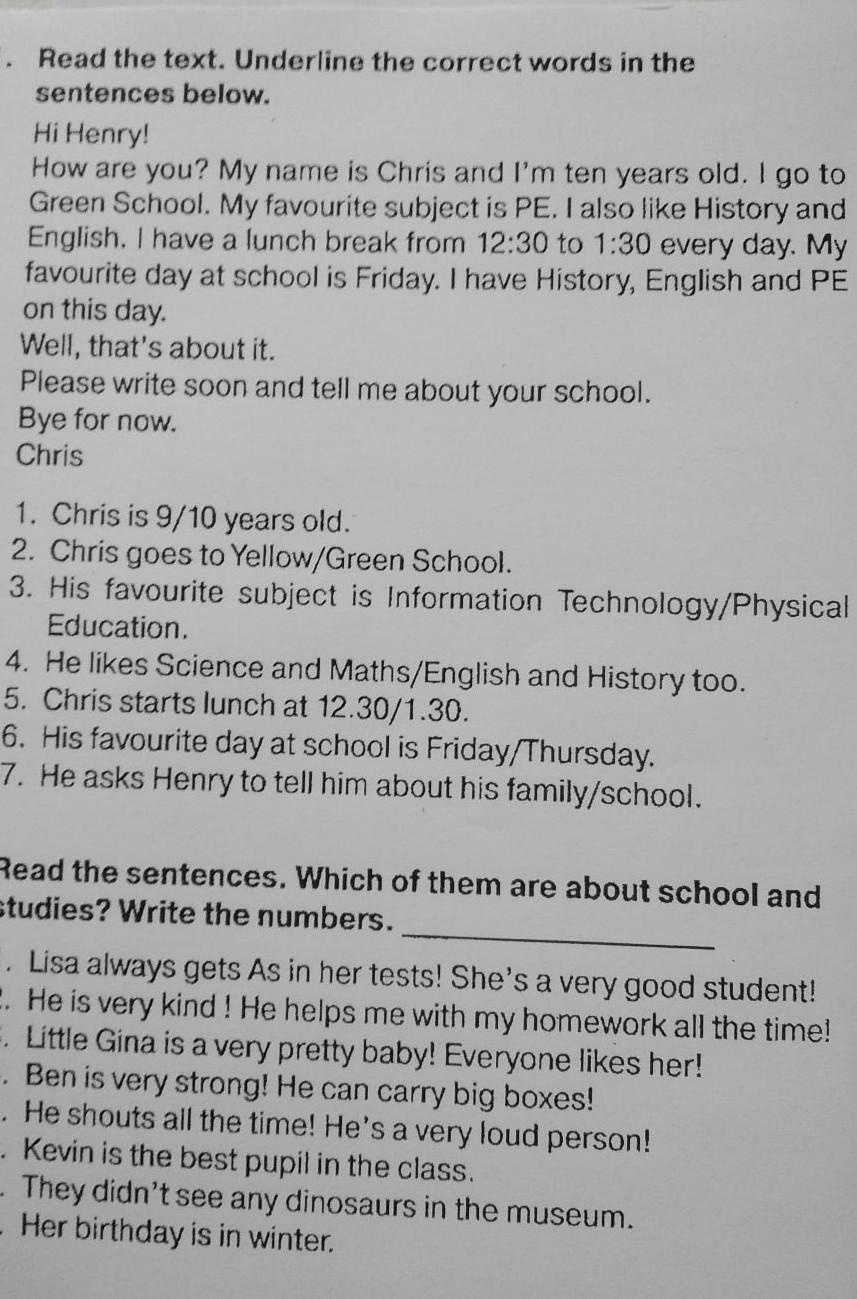 . Read the text. Underline the correct words in the
sentences below.
Hi Henry!
How are you? My name is Chris and I'm ten years old. I go to
Green School. My favourite subject is PE. I also like History and
English. I have a lunch break from 12:30 to 1:30 every day. My
favourite day at school is Friday. I have History, English and PE
on this day.
Well, that's about it.
Please write soon and tell me about your school.
Bye for now.
Chris
1. Chris is 9/10 years old.
2. Chris goes to Yellow/Green School.
3. His favourite subject is Information Technology/Physical
Education.
4. He likes Science and Maths/English and History too.
5. Chris starts lunch at 12.30/1.30.
6. His favourite day at school is Friday/Thursday.
7. He asks Henry to tell him about his family/school.
Read the sentences. Which of them are about school and
studies? Write the numbers.
. Lisa always gets As in her tests! She's a very good student!
. He is very kind ! He helps me with my homework all the time!
. Little Gina is a very pretty baby! Everyone likes her!
. Ben is very strong! He can carry big boxes!
. He shouts all the time! He's a very loud person!
. Kevin is the best pupil in the class.
. They didn't see any dinosaurs in the museum.
. Her birthday is in winter.